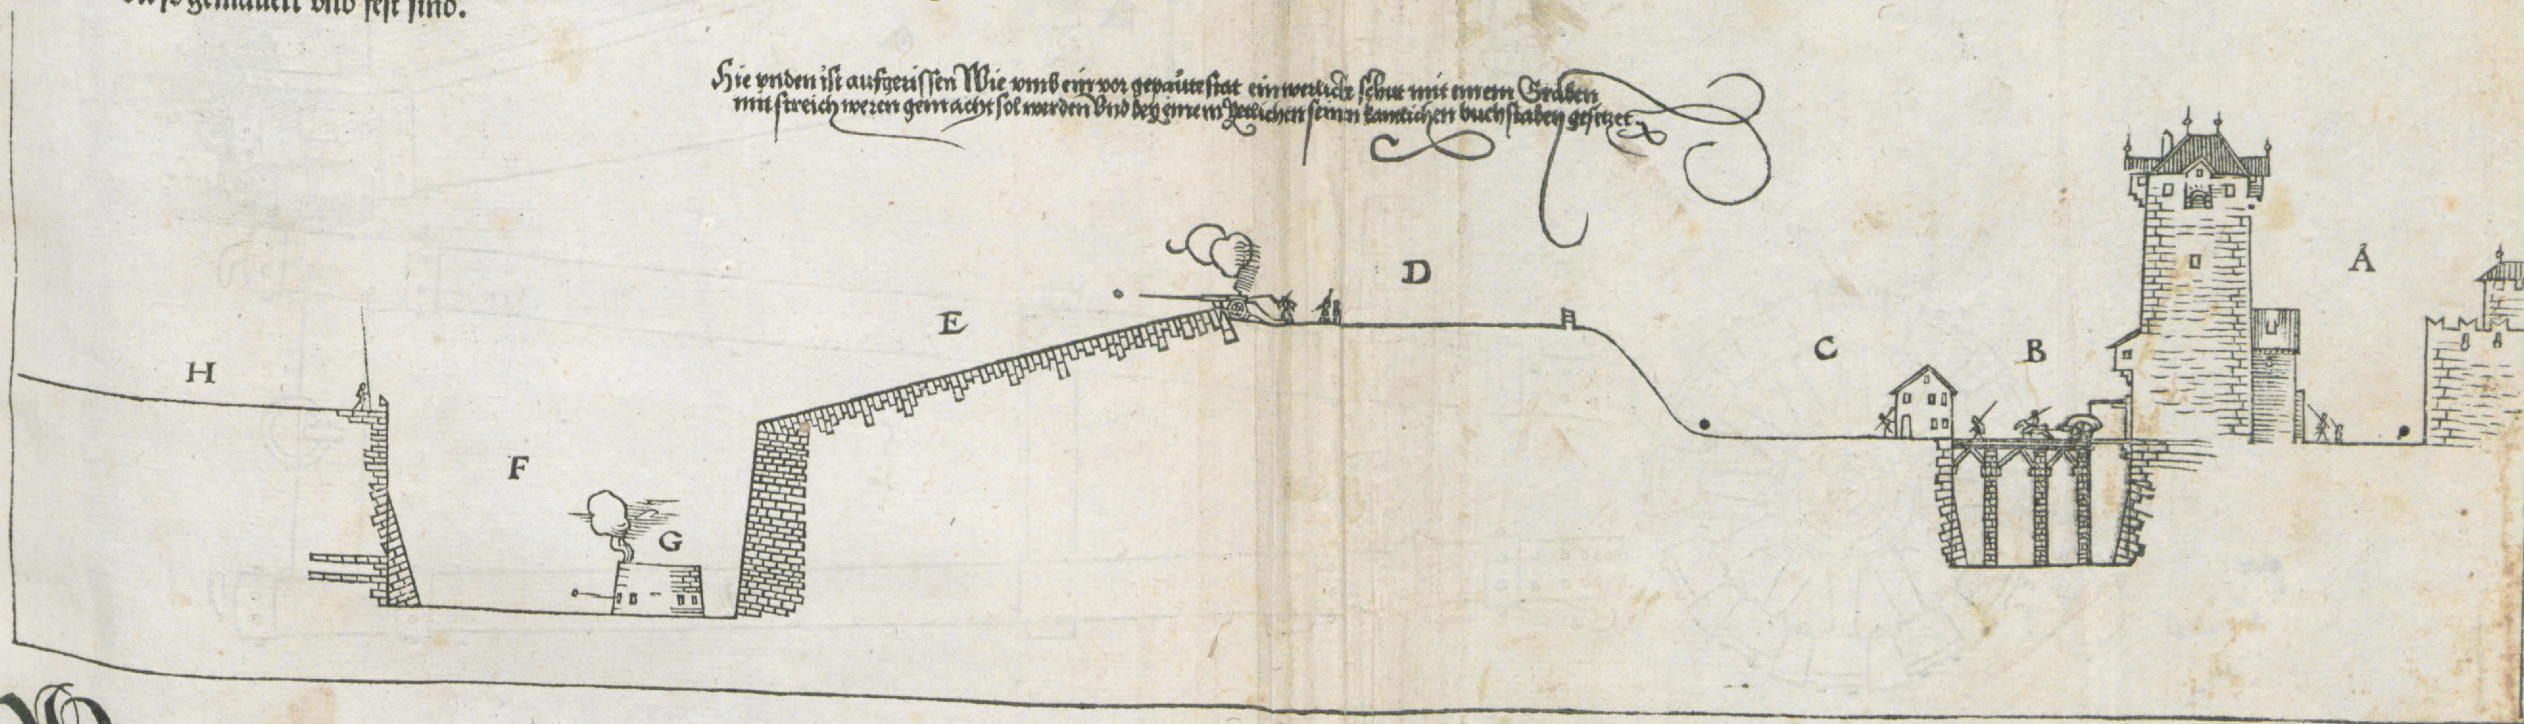 gemauert vnd fest sind.
Hie vnden ist aufgerissen Wie vmb ein vor gepaute stat ein werliche schut mit einem Graben
mit streich weren gemacht sol werden Vnd bey einem yetlichen seinen kantlichen buchstaben gesetzet
D
A
E
C
B
H
F
G